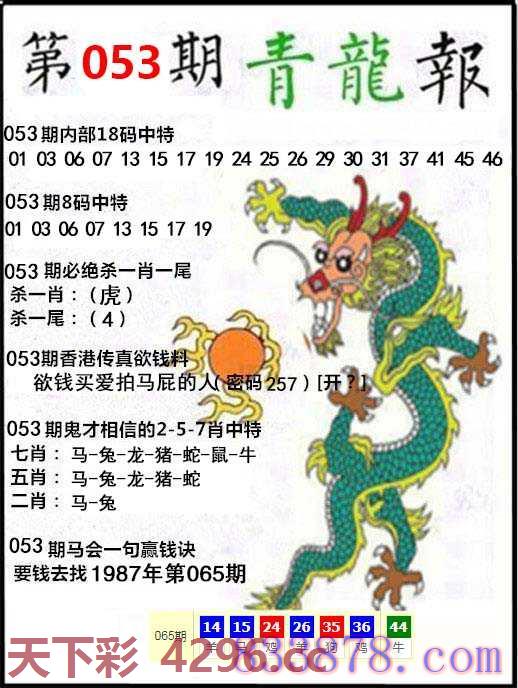 第053期 青龍報
053期内部18码中特
01 03 06 07 13 15 17 19 24 25 26 29 30 31 37 41 45 46
053期8码中特
01 03 06 07 13 15 17 19
053期必绝杀一肖一尾
杀一肖：（虎）
杀一尾：（4）
053期香港传真欲钱料
欲钱买爱拍马屁的人(密码257)[开？]
053期鬼才相信的2-5-7肖中特
七肖：马-兔-龙-猪-蛇-鼠-牛
五肖：马-兔-龙-猪-蛇
二肖：马-兔
053期马会一句赢钱诀
要钱去找1987年第065期
065期 14 15 24 26 35 36 44
羊 马 鸡 羊 狗 鸡 牛
天下彩 4296.cc